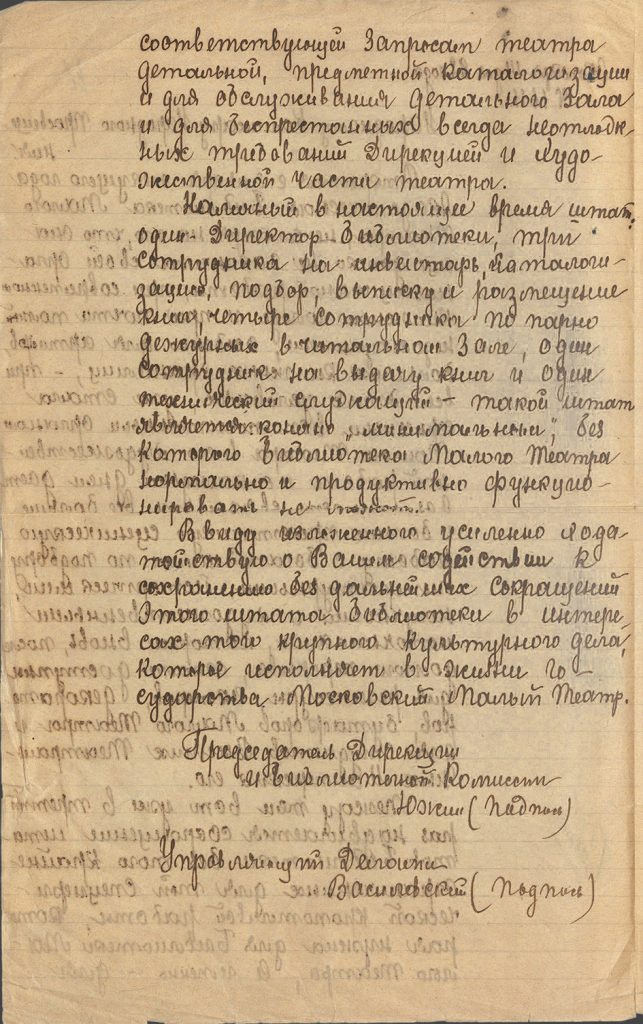 соответствующей запросам театра
детальной, предметной каталогизации
и для обслуживания детального зала
и для беспрестанных всегда неотлож-
ных требований Дирекцией и худо-
жественной части театра.
Наличный в настоящее время штат:
один - Директор - библиотеки, три
сотрудника на инвентарь, каталоги-
зацию, подбор, выписку и размещение
книг, четыре сотрудника по парно
дежурных в читальном зале, один
сотрудник на выдачу книг и один
технический служащий - такой штат
является конечно „минимальным", без
которого библиотека Малого Театра
нормально и продуктивно функцио-
нировать не может.
Ввиду изложенного усиленно хода-
тайствую о Вашем содействии к
сохранению без дальнейших сокращений
этого штата библиотеки в интере-
сах того крупного культурного дела,
которое исполняет в жизни го-
сударства Московский Малый Театр.
Председатель Дирекции
и библиотечной Комиссии
Южин (подпись)
Управляющий Делами
Василевский (подпись)